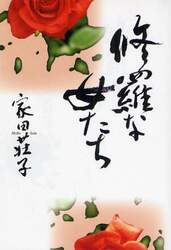 修羅な
女たち
家田荘子